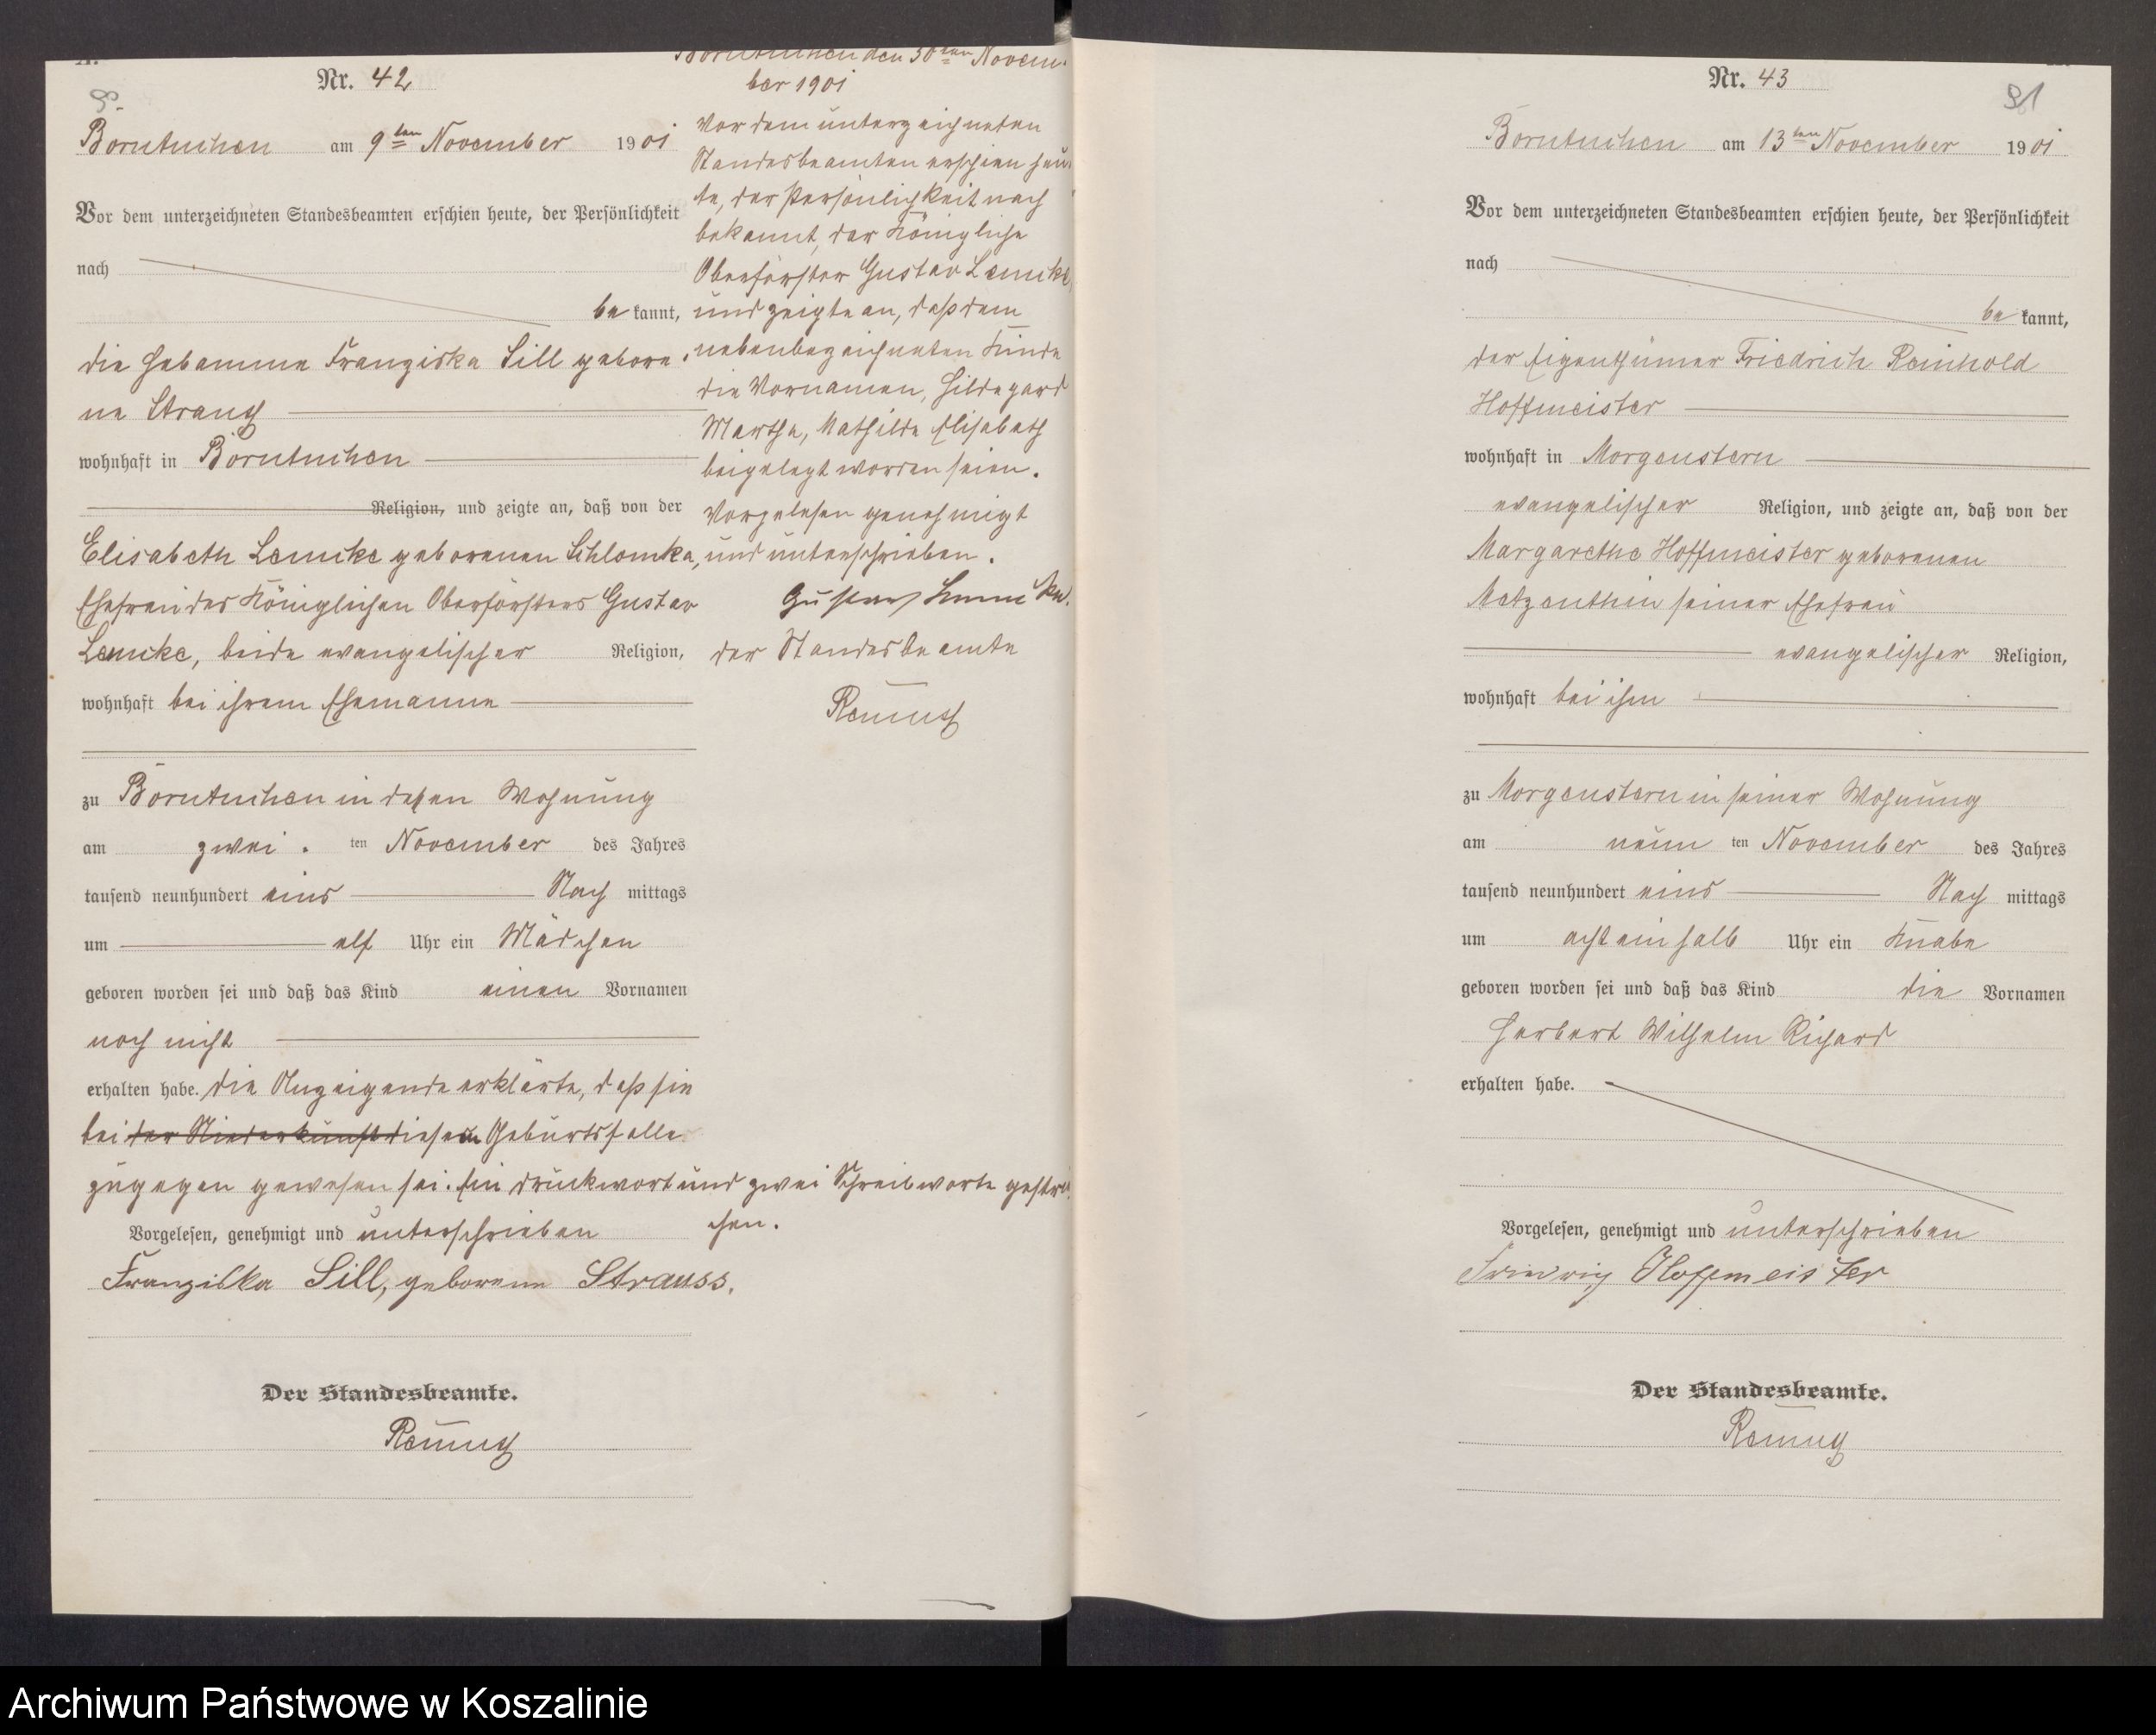 Nr. 42
Borntuchen am 9ten November 1901
Vor dem unterzeichneten Standesbeamten erschien heute, der Persönlichkeit
nach
be kannt,
die Hebamme Franziska Sill gebore-
ne Strauß
wohnhaft in Borntuchen
Religion, und zeigte an, daß von der
Elisabeth Lemcke geborenen Schlomka,
Ehefrau des Königlichen Oberförsters Gustav
Lemcke, beide evangelischer Religion,
wohnhaft bei ihrem Ehemanne
zu Borntuchen in dessen Wohnung
am zwei ten November des Jahres
tausend neunhundert eins Nach mittags
um elf Uhr ein Mädchen
geboren worden sei und daß das Kind einen Vornamen
noch nicht
erhalten habe. Die Anzeigende erklärte, daß sie
bei der Niederkunft diesem Geburtsfalle
zugegen gewesen sei. Ein Druckwort und zwei Schreibworte gestri-
chen.
Vorgelesen, genehmigt und unterschrieben
Franziska Sill, geborene Strauss.
Der Standesbeamte.
Borntuchen den 30ten Novem-
ber 1901
Vor dem unterzeichneten
Standesbeamten erschien heu-
te, der Persönlichkeit nach
bekannt, der Königliche
Oberförster Gustav Lemcke,
und zeigte an, daß dem
nebenbezeichneten Kinde
die Vornamen, Hildegard
Martha, Mathilde Elisabeth
beigelegt worden seien.
Vorgelesen genehmigt
und unterschrieben.
Gustav Lemcke.
der Standesbeamte
Nr. 43
91
Borntuchen am 13ten November 1901
Vor dem unterzeichneten Standesbeamten erschien heute, der Persönlichkeit
nach
be kannt,
der Eigenthümer Friedrich Reinhold
Hoffmeister
wohnhaft in Morgenstern
evangelischer Religion, und zeigte an, daß von der
Margarethe Hoffmeister geborenen
Metzenthin seiner Ehefrau
evangelischer Religion,
wohnhaft bei ihm
zu Morgenstern in seiner Wohnung
am neun ten November des Jahres
tausend neunhundert eins Nach mittags
um acht ein halb Uhr ein Knabe
geboren worden sei und daß das Kind die Vornamen
Herbert Wilhelm Richard
erhalten habe.
Vorgelesen, genehmigt und unterschrieben
Friedrich Hoffmeister
Der Standesbeamte.
Archiwum Państwowe w Koszalinie